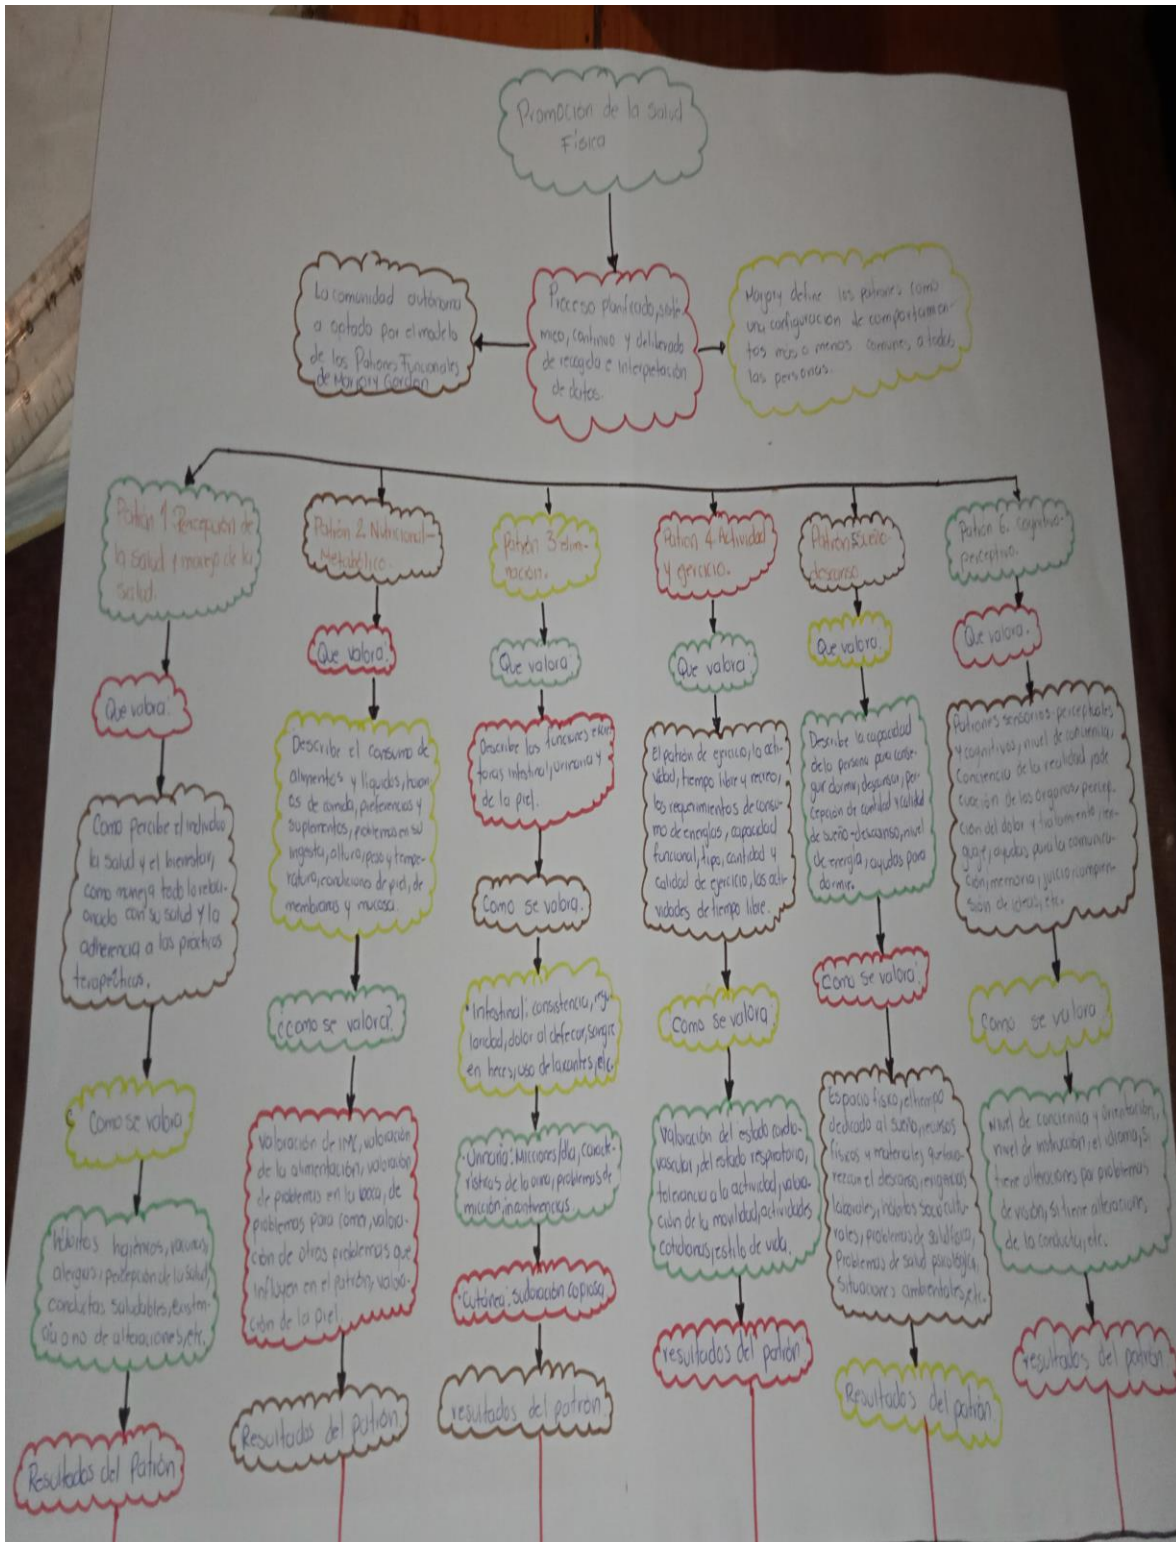 Promoción de la salud
Física
La comunidad autónoma
a optado por el modelo
de los Patrones Funcionales
de Marjory Gordon
Proceso planificado, siste-
mico, continuo y deliberado
de recogida e interpretación
de datos.
Marjory define los patrones como
una configuración de comportamien-
tos mas o menos comunes a todas
las personas.
Patrón 1 Percepción de
la salud y manejo de la
salud.
Que valora:
Como percibe el individuo
la salud y el bienestar,
como maneja todo lo relaci-
onado con su salud y la
adherencia a las prácticas
terapeúticas.
Como se valora
Hábitos higiénicos, vacunas,
alergias, percepción de la salud,
conductas saludables, existen-
cia o no de alteraciones, etc.
Resultados del Patrón
Patrón 2 Nutricional-
Metabólico.
Que valora:
Describe el consumo de
alimentos y líquidos, horari-
os de comida, preferencias y
suplementos, problemas en su
ingesta, altura, peso y tempe-
ratura, condiciones de piel, de
membranas y mucosa.
¿como se valora?
Valoración de IMC, valoración
de la alimentación, valoración
de problemas en la boca, de
problemas para comer, valora-
ción de otros problemas que
influyen en el patrón, valora-
ción de la piel.
Resultados del patrón
Patrón 3 elimi-
nación.
Que valora:
Describe las funciones excre-
toras intestinal, urinaria y
de la piel.
Como se valora.
•Intestinal: consistencia, regu-
laridad, dolor al defecar, sangre
en heces, uso de laxantes, etc.
•Urinaria: Micciones/día, caracte-
rísticas de la orina, problemas de
micción, incontinencias.
•Cutánea: sudoración copiosa
resultados del patrón
Patrón 4 Actividad
y ejercicio.
Que valora:
El patrón de ejercicio, la acti-
vidad, tiempo libre y recreo,
los requerimientos de consu-
mo de energías, capacidad
funcional, tipo, cantidad y
calidad de ejercicio, las acti-
vidades de tiempo libre.
Como se valora
Valoración del estado cardio-
vascular, del estado respiratorio,
tolerancia a la actividad, valora-
ción de la movilidad, actividades
cotidianas, estilo de vida.
resultados del patrón
Patrón 5 Sueño-
descanso.
Que valora:
Describe la capacidad
de la persona para conse-
guir dormir, descansar, per-
cepción de cantidad y calidad
de sueño-descanso, nivel
de energía, ayudas para
dormir.
Como se valora:
Espacio físico, el tiempo
dedicado al sueño, recursos
físicos y materiales que favo-
rezcan el descanso, exigencias
laborales, hábitos socio cultu-
rales, problemas de salud física,
Problemas de salud psicológica,
Situaciones ambientales, etc.
Resultados del patrón
Patrón 6. Cognitivo-
perceptivo.
Que valora:
Patrones sensorios-perceptuales
y cognitivos, nivel de conciencia,
Conciencia de la realidad, ade
cuación de los órganos, percep-
ción del dolor y tratamiento, len-
guaje, ayudas, para la comunica-
ción, memoria, juicio, compren-
sión de ideas, etc.
Como se valora
Nivel de conciencia y orientación,
nivel de instrucción, el idioma, si
tiene alteraciones por problemas
de visión, si tiene alteraciones
de la conducta, etc.
resultados del patrón